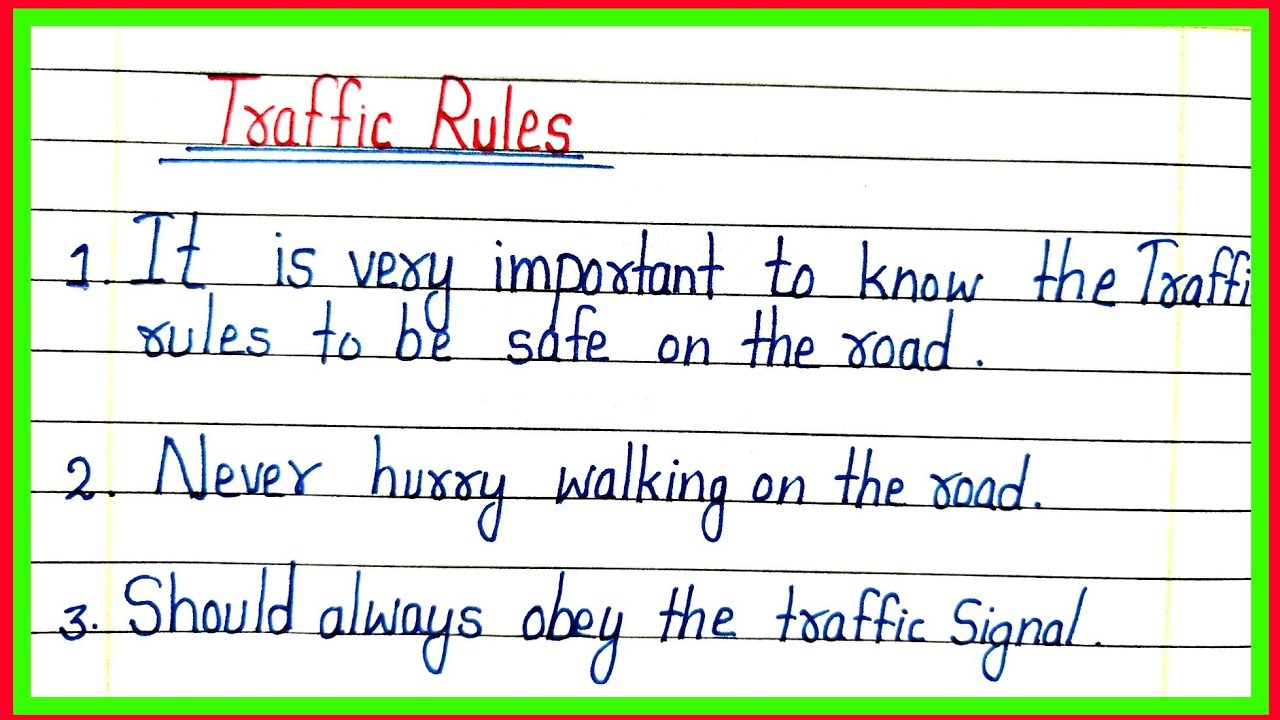 Traffic Rules
1. It is very important to know the Traffi
rules to be safe on the road.
2. Never hurry walking on the road.
3. Should always obey the traffic Signal.